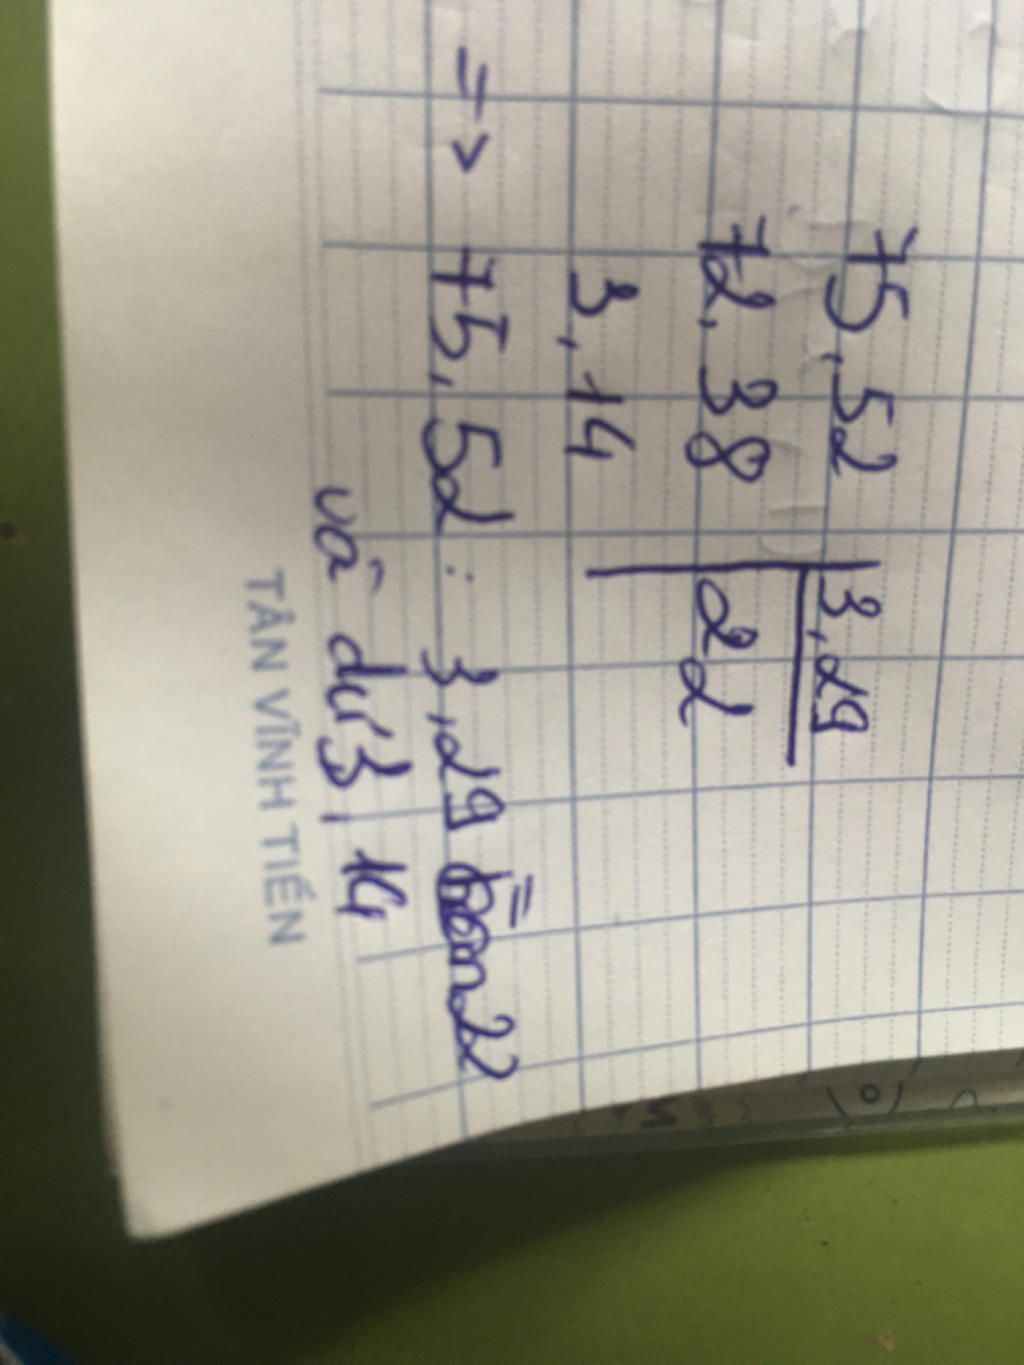 75,52 | 3,29
72,38 | 22
3,14
=> 75,52 : 3,29 = 22
và dư 3,14
TÂN VĨNH TIẾN